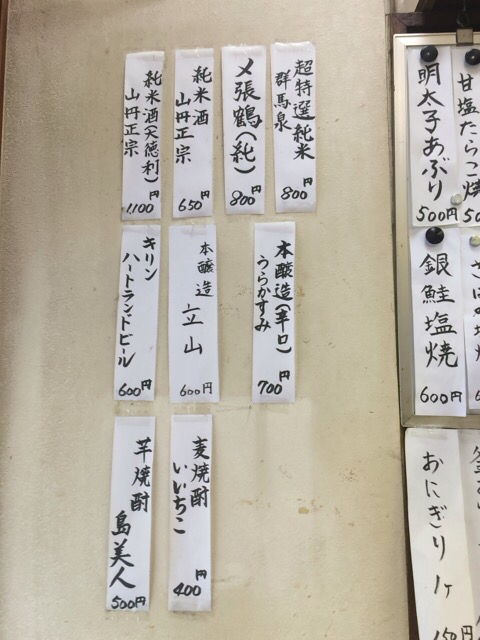 超特選純米
群馬泉
800円
〆張鶴(純)
800円
純米酒
山丹正宗
650円
純米酒(大徳利)
山丹正宗
1,100円
本醸造(辛口)
うらかすみ
700円
本醸造
立山
600円
キリン
ハートランドビール
600円
麦焼酎
いいちこ
400円
芋焼酎
島美人
500円
甘塩たらこ焼
明太子あぶり
500円
銀鮭塩焼
600円
おにぎり1ヶ
150円